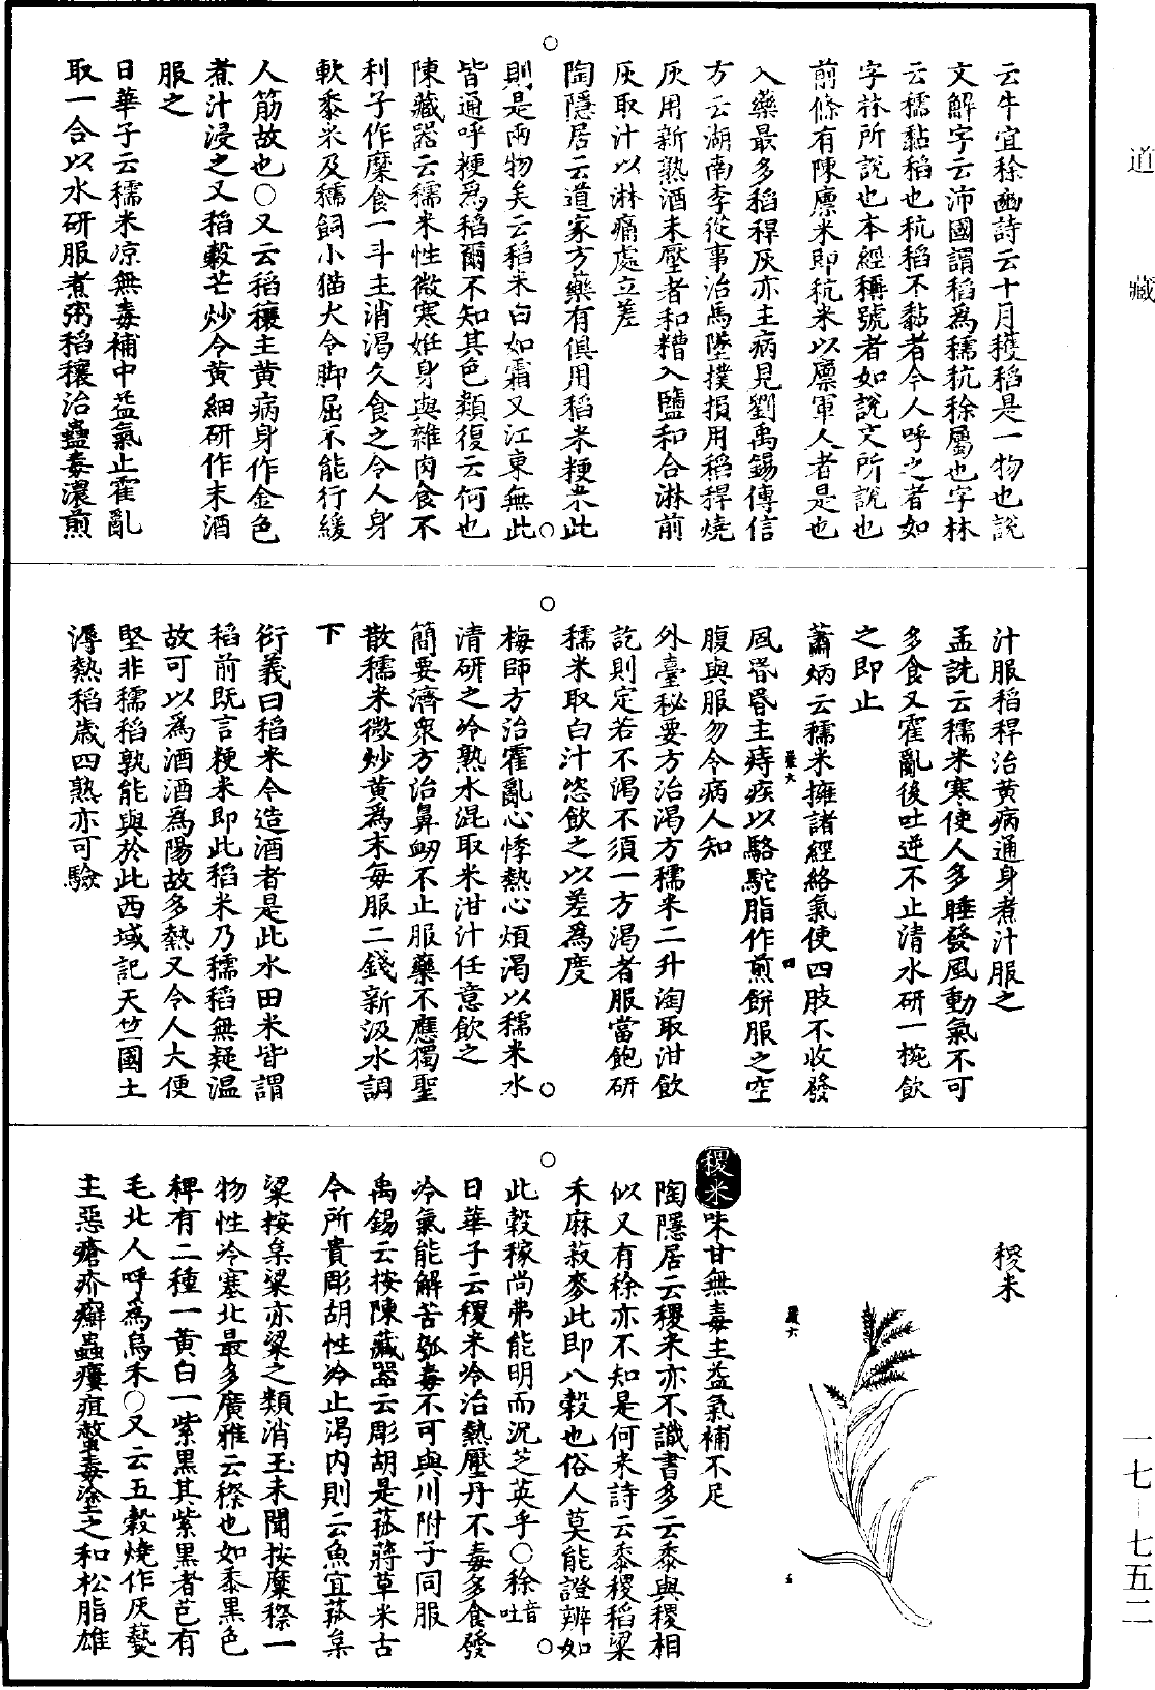 道藏
一七—七五二
云牛宜稌豳詩云十月穫稻是一物也說
文解字云沛國謂稻為稬秔稌屬也字林
云糯黏稻也秔稻不黏者今人呼之者如
字林所說也本經稱號者如說文所說也
前條有陳廩米即秔米以廩軍人者是也
入藥最多稻稈灰亦主病見劉禹錫傳信
方云湖南李從事治馬墜撲損用稻稈燒
灰用新熟酒未壓者和糟入鹽和合淋前
灰取汁以淋痛處立差
陶隱居云道家方藥有俱用稻米粳米此
則是兩物矣云稻米白如霜又江東無此
皆通呼粳為稻爾不知其色類復云何也
陳藏器云糯米性微寒姙身與雜肉食不
利子作糜食一斗主消渴久食之令人身
軟黍米及糯飼小猫犬令脚屈不能行緩
人筋故也○又云稻穰主黃病身作金色
煮汁浸之又稻穀芒炒令黃細研作末酒
服之
日華子云糯米凉無毒補中益氣止霍亂
取一合以水研服煮粥稻穰治蠱毒濃煎
汁服稻稈治黃病通身煮汁服之
孟詵云糯米寒使人多睡發風動氣不可
多食又霍亂後吐逆不止清水研一椀飲
之即止
蕭炳云糯米擁諸經絡氣使四肢不收發
風昏昏主痔疾以駱駝脂作煎餅服之空
腹與服勿令病人知
外臺秘要方治渴方糯米二升淘取泔飲
訖則定若不渴不須一方渴者服當飽研
糯米取白汁恣飲之以差為度
梅師方治霍亂心悸熱心煩渴以糯米水
清研之冷熟水混取米泔汁任意飲之
簡要濟眾方治鼻衂不止服藥不應獨聖
散糯米微炒黃為末每服二錢新汲水調
下
衍義曰稻米今造酒者是此水田米皆謂
稻前既言粳米即此稻米乃糯稻無疑溫
故可以為酒酒為陽故多熱又令人大便
堅非糯稻孰能與於此西域記天竺國土
溽熱稻歲四熟亦可驗
稷米
稷米味甘無毒主益氣補不足
陶隱居云稷米亦不識書多云黍與稷相
似又有稌亦不知是何米詩云黍稷稻粱
禾麻菽麥此即八穀也俗人莫能證辨如
此穀稼尚弗能明而況芝英乎○稌音吐
日華子云稷米冷治熱壓丹不毒多食發
冷氣能解苦瓠毒不可與川附子同服
禹錫云按陳藏器云彫胡是菰蔣草米古
今所貴彫胡性冷止渴內則云魚宜菰枲
粱按枲粱亦粱之類消玉未聞按糜穄一
物性冷塞北最多廣雅云穄也如黍黑色
稗有二種一黃白一紫黑其紫黑者芑有
毛北人呼為烏禾○又云五穀燒作灰蓺
主惡瘡疥癬蟲瘻疽螫毒塗之和松脂雄